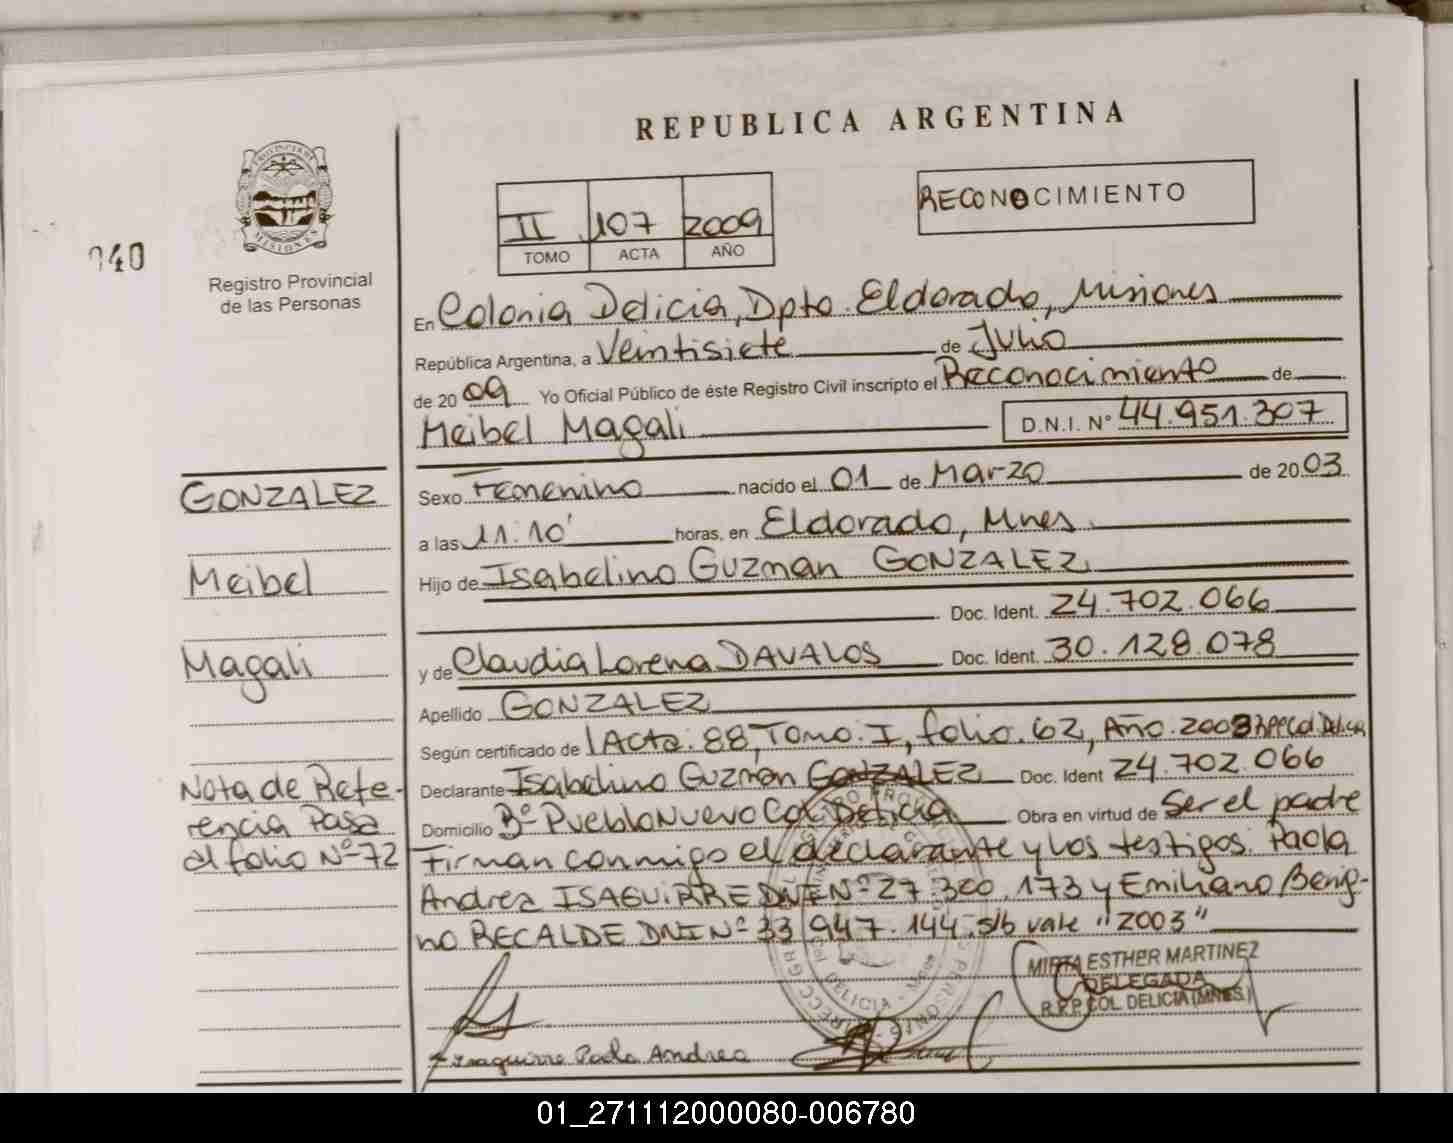 REPUBLICA ARGENTINA
II 107 2009
TOMO ACTA AÑO
RECONOCIMIENTO
PROVINCIA
MISIONES
040
Registro Provincial
de las Personas
En Colonia Delicia, Dpto. Eldorado, Misiones
República Argentina, a Veintisiete de Julio
de 2009 Yo Oficial Público de éste Registro Civil inscripto el Reconocimiento de
Meibel Magali D.N.I. N° 44.951.307
GONZALEZ
Meibel
Magali
Nota de Refe-
rencia Pasa
al folio Nº 72
Sexo Femenino nacido el 01 de Marzo de 2003
a las 11:10' horas, en Eldorado, Mnes.
Hijo de Isabelino Guzman GONZALEZ
Doc. Ident. 24.702.066
y de Claudia Lorena DAVALOS Doc. Ident. 30.128.078
Apellido GONZALEZ
Según certificado de Acta. 88, Tomo. I, folio. 62, Año. 2003
Declarante Isabelino Guzmán GONZALEZ Doc. Ident 24.702.066
Domicilio Bº Pueblo Nuevo Col. Delicia Obra en virtud de Ser el padre
Firman conmigo el declarante y los testigos. Paola
Andrea ISAGUIRRE DNI Nº 27.300.173 y Emiliano Benig-
no RECALDE DNI Nº 33.947.144. s/b vale "2003"
MIRTA ESTHER MARTINEZ
DELEGADA
R.P.P. COL. DELICIA (MNES.)
Isaguirre Paola Andrea
01_271112000080-006780